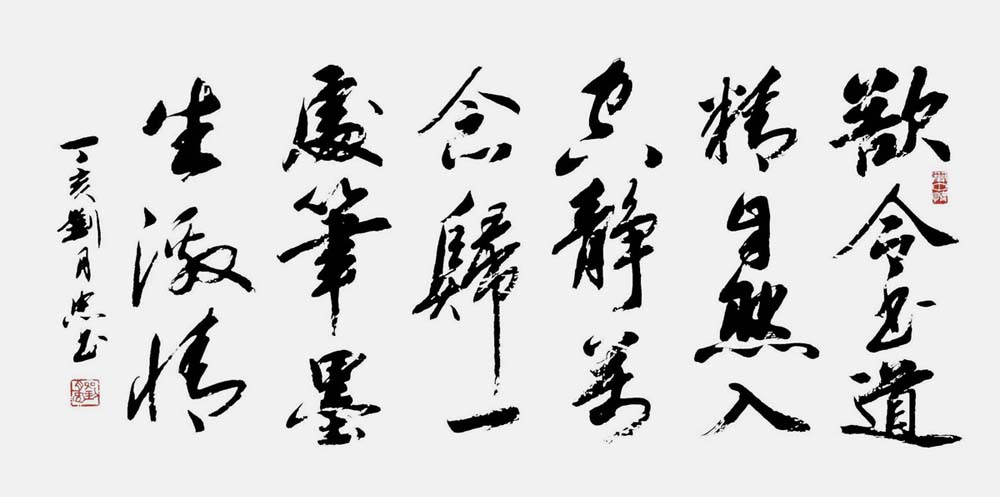 欲令书道
精自然入
空静萬
念歸一
處筆墨
生激情
丁亥劉月忠书